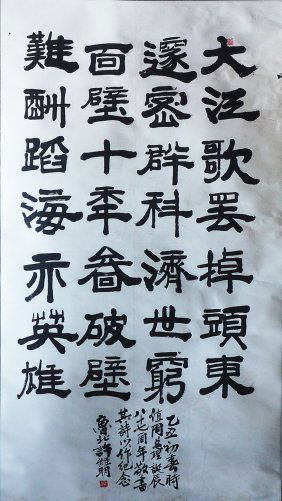 大江歌罢掉頭東
邃密群科濟世窮
面壁十年啚破壁
難酬蹈海亦英雄
乙丑初春時
值周总理誕辰
八十七周年敬書
其詩以作紀念
魯北許明